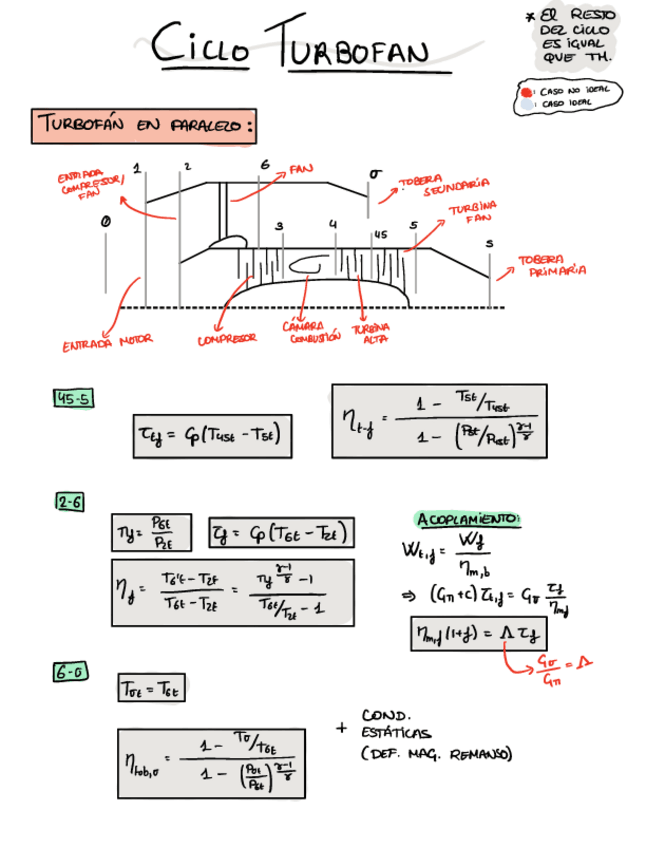 CICLO TURBOFAN
* EL RESTO
DEL CICLO
ES IGUAL
QUE TH.
: CASO NO IDEAL
: CASO IDEAL
TURBOFÁN EN PARALELO:
ENTRADA
COMPRESOR/
FAN
1
2
6
FAN
σ
TOBERA
SECUNDARIA
TURBINA
FAN
0
3
4
45
5
s
TOBERA
PRIMARIA
ENTRADA MOTOR
COMPRESOR
CÁMARA
COMBUSTIÓN
TURBINA
ALTA
45-5
τtf = Cp(T45t - T5t)
ηt-f = (1 - T5t/T45t) / (1 - (P5t/P45t)^((γ-1)/γ))
2-6
πf = P6t/P2t
τf = Cp(T6t - T2t)
ηf = (T6't - T2t)/(T6t - T2t) = (πf^((γ-1)/γ) - 1)/(T6t/T2t - 1)
ACOPLAMIENTO:
Wt,f = Wf/ηm,b
⇒ (Gπ+C) τt,f = Gσ τf/ηmf
ηm,f (1+f) = Λ τf
Gσ/Gπ = Λ
6-σ
Tσt = T6t
ηtob,σ = (1 - Tσ/T6t) / (1 - (Pσt/P6t)^((γ-1)/γ))
+ COND.
ESTÁTICAS
(DEF. MAG. REMANSO)